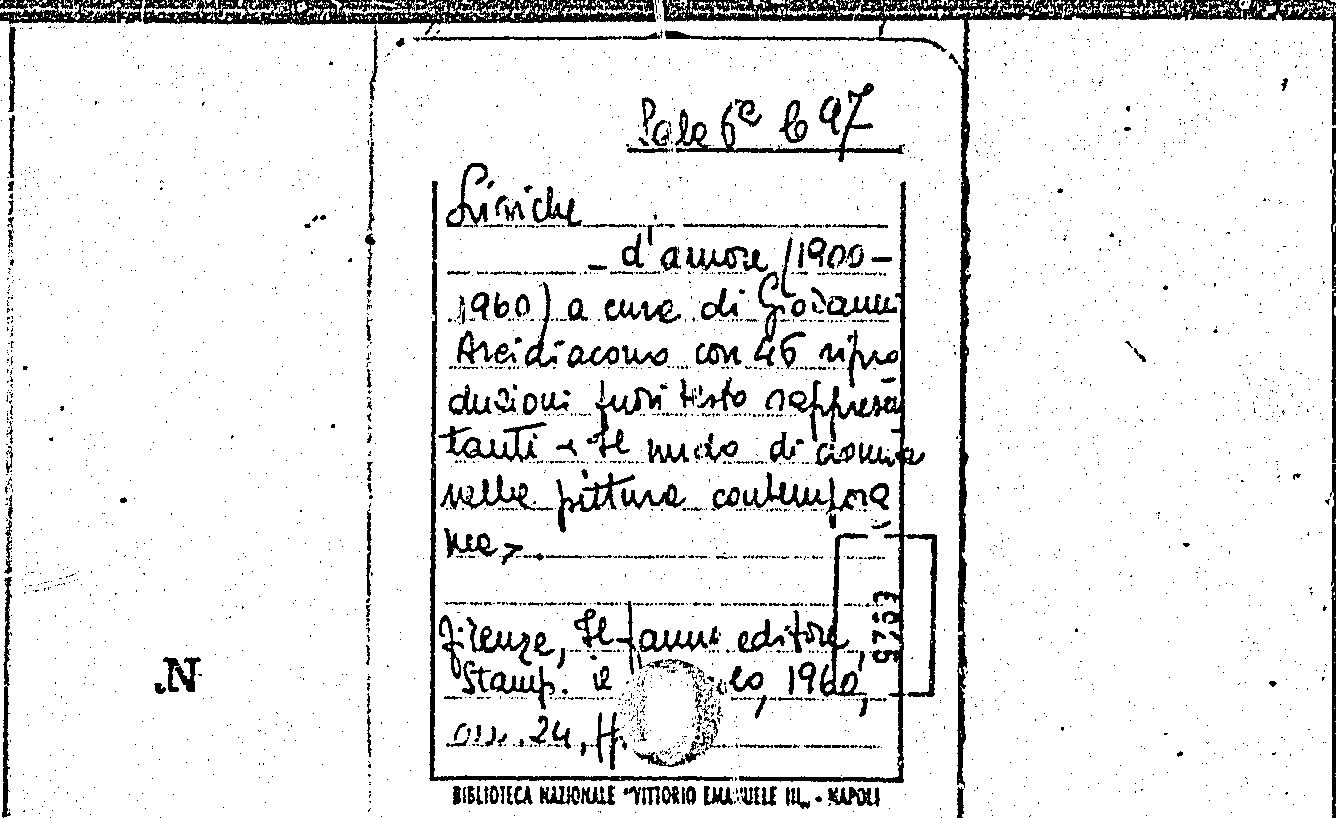 Sala 6ª C 97
Liriche
– d'amore (1900–
1960) a cura di Giovanni
Arcidiacono con 46 ripro
duzioni fuori testo rappresē
tanti < Il nudo di donna
nella pittura contempora
nea >.
Firenze, Il fauno editore,
Stamp. 1960,
24,
BIBLIOTECA NAZIONALE "VITTORIO EMANUELE III„ - NAPOLI
5753
N.